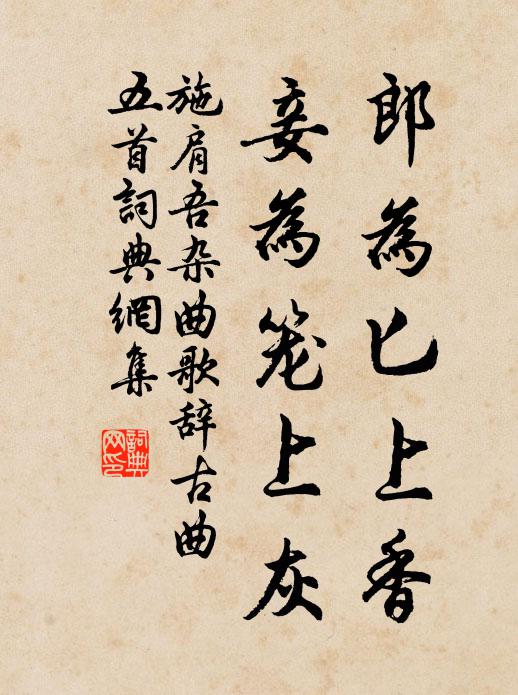 郎為匕上香
妾為笼上灰
施肩吾杂曲歌辞古曲
五首詞典網集
詞典網印